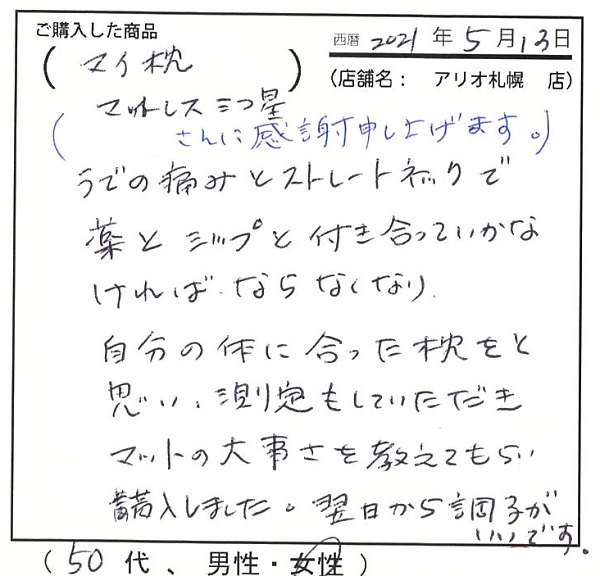 ご購入した商品
西暦 2021 年 5 月 13 日
( マイ枕 )
(店舗名： アリオ札幌 店)
マットレス三つ星
( さんに感謝申し上げます。)
うでの痛みとストレートネックで
薬と シップと付き合っていかな
ければ ならなくなり
自分の体に合った枕をと
思い、測定もしていただき
マットの大事さを教えてもらい
購入しました。翌日から調子が
いいです。
( 50 代 、 男性・女性 )